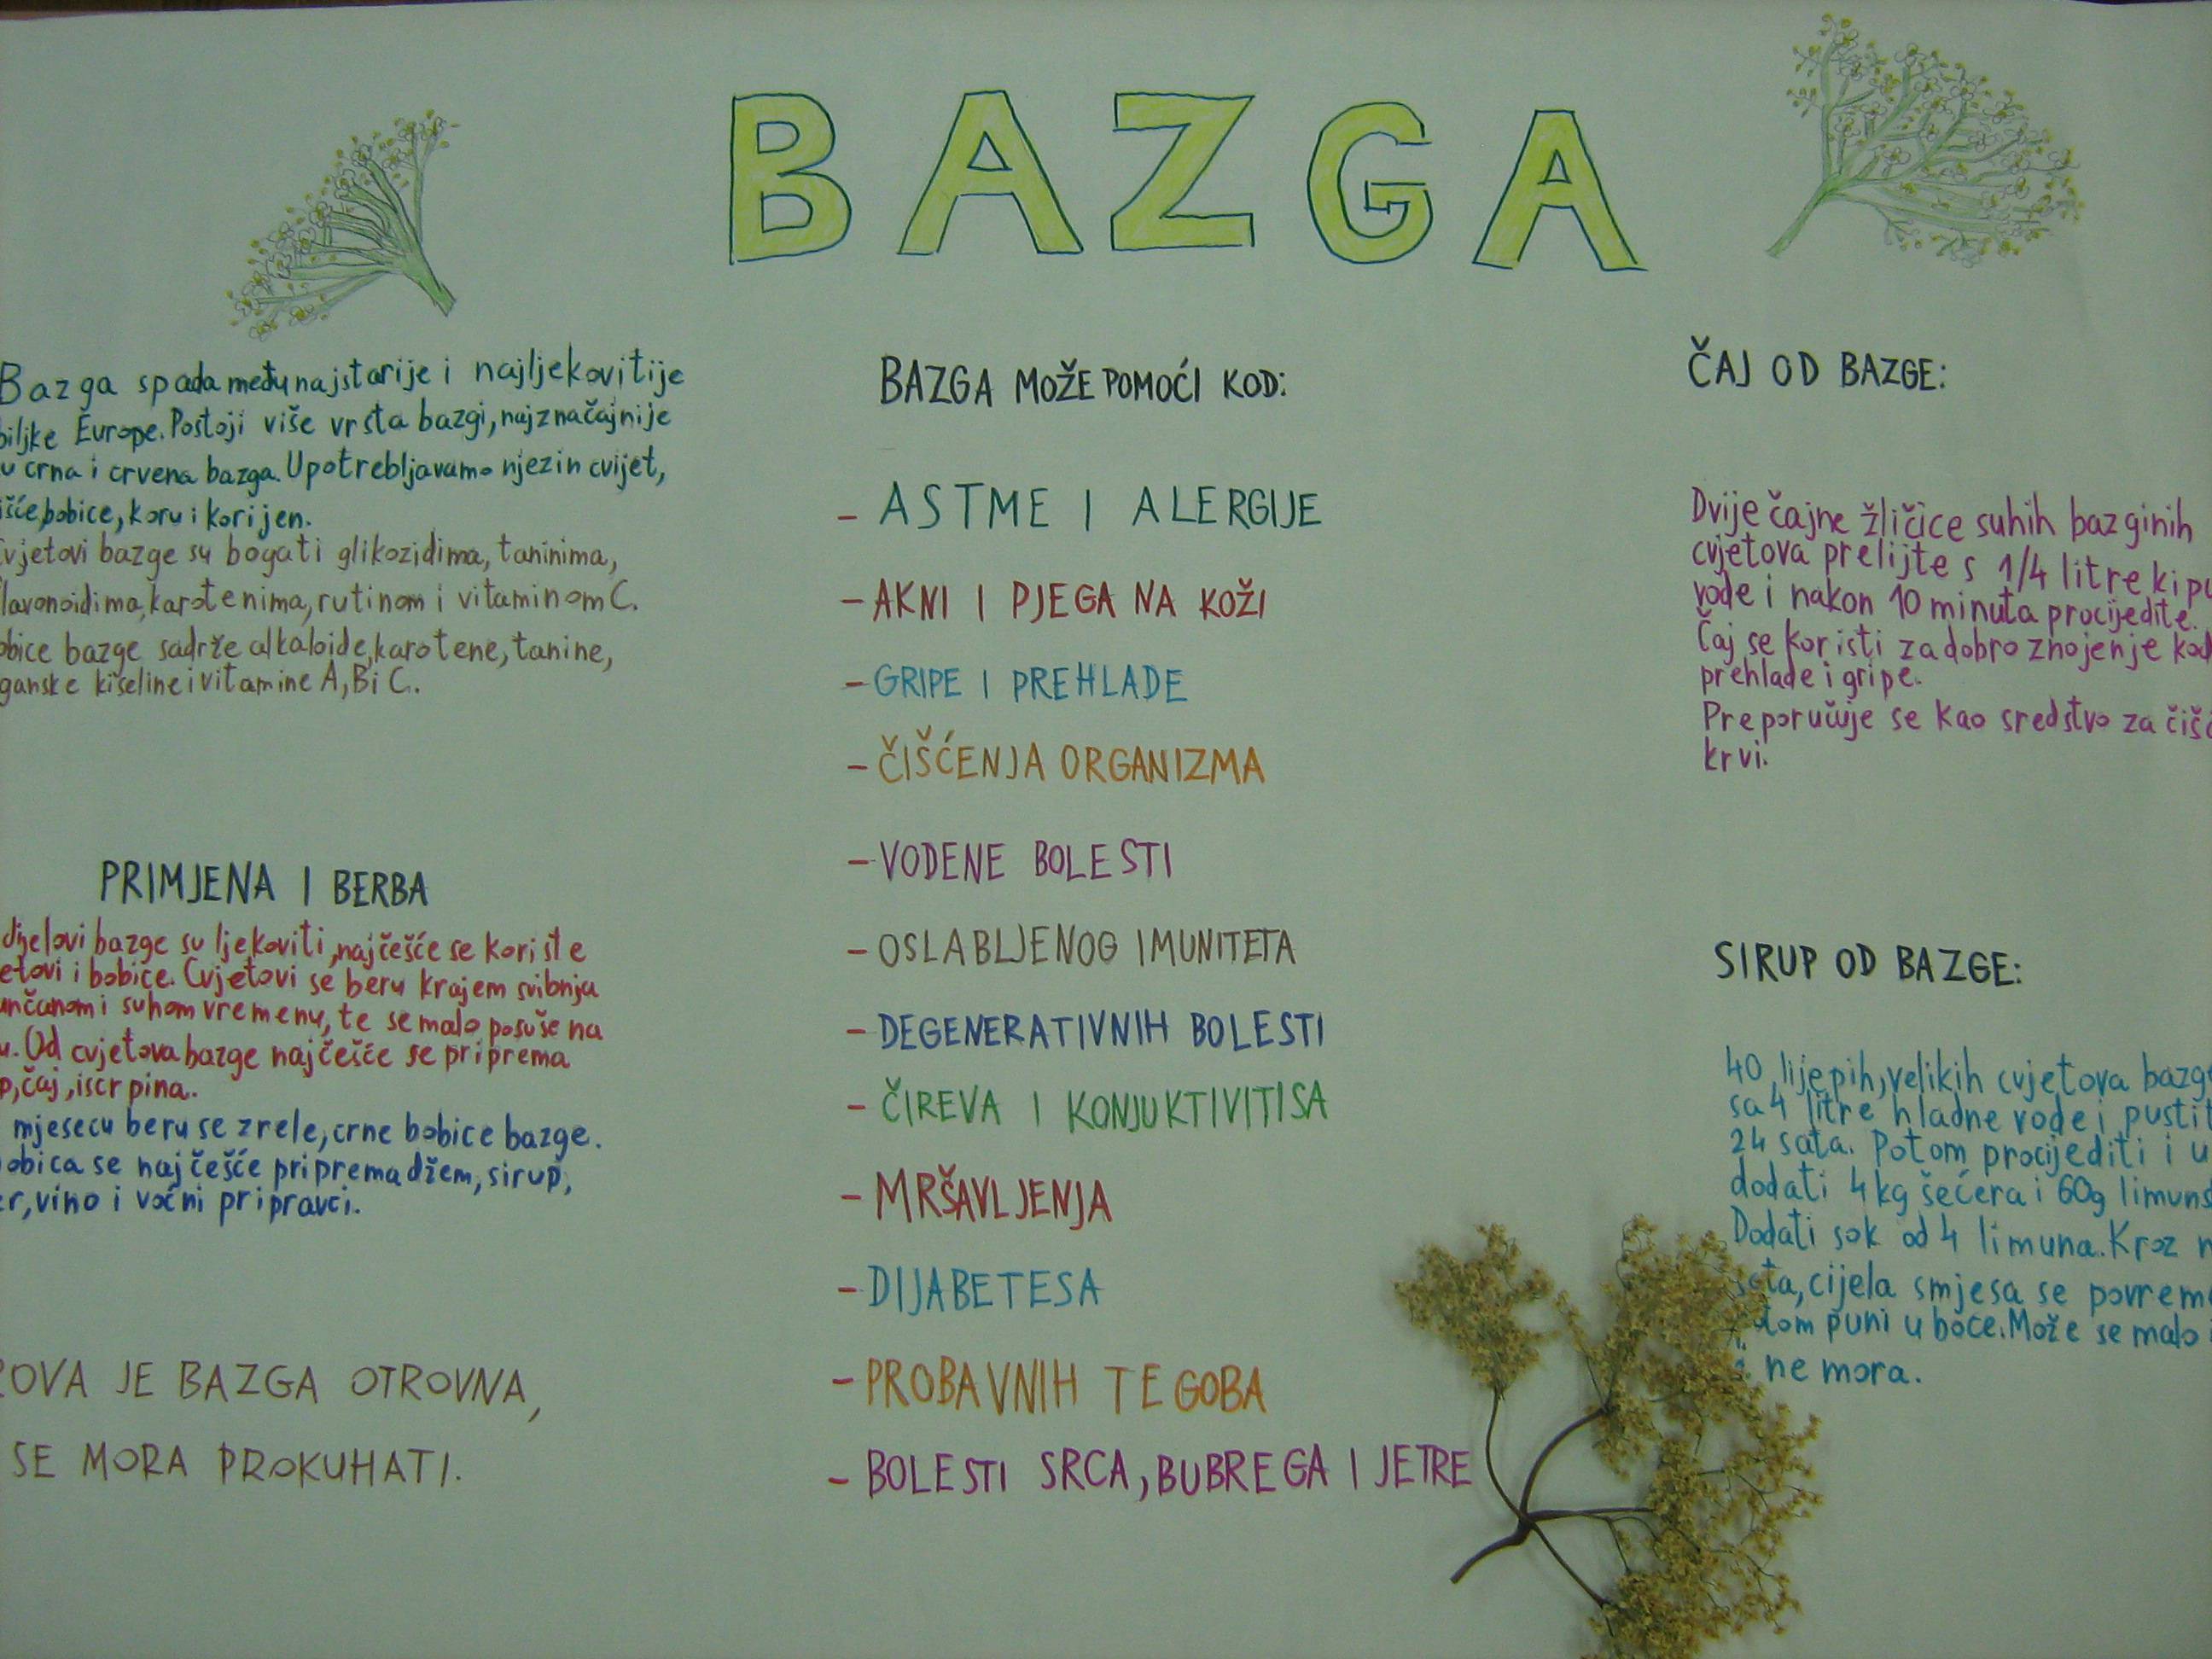 BAZGA
Bazga spada među najstarije i najljekovitije
biljke Europe. Postoji više vrsta bazgi, najznačajnije
u crna i crvena bazga. Upotrebljavamo njezin cvijet,
išće, bobice, koru i korijen.
cvjetovi bazge su bogati glikozidima, taninima,
lavonoidima, karotenima, rutinom i vitaminom C.
obice bazge sadrže alkaloide, karotene, tanine,
ganske kiseline i vitamine A, B i C.
PRIMJENA I BERBA
dijelovi bazge su ljekoviti, najčešće se koriste
etovi i bobice. Cvjetovi se beru krajem svibnja
unčanom i suhom vremenu, te se malo posuše na
u. Od cvjetova bazge najčešće se priprema
p, čaj, iscrpina.
mjesecu beru se zrele, crne bobice bazge.
obica se najčešće priprema džem, sirup,
er, vino i voćni pripravci.
ROVA JE BAZGA OTROVNA,
SE MORA PROKUHATI.
BAZGA MOŽE POMOĆI KOD:
- ASTME I ALERGIJE
- AKNI I PJEGA NA KOŽI
- GRIPE I PREHLADE
- ČIŠĆENJA ORGANIZMA
- VODENE BOLESTI
- OSLABLJENOG IMUNITETA
- DEGENERATIVNIH BOLESTI
- ČIREVA I KONJUKTIVITISA
- MRŠAVLJENJA
- DIJABETESA
- PROBAVNIH TEGOBA
- BOLESTI SRCA, BUBREGA I JETRE
ČAJ OD BAZGE:
Dvije čajne žličice suhih bazginih
cvjetova prelijte s 1/4 litre kipu
vode i nakon 10 minuta procijedite.
Čaj se koristi za dobro znojenje kod
prehlade i gripe.
Preporučuje se kao sredstvo za čišć
krvi.
SIRUP OD BAZGE:
40 lijepih, velikih cvjetova bazge
sa 4 litre hladne vode i pustit
24 sata. Potom procijediti i u
dodati 4 kg šećera i 60g limuns
Dodati sok od 4 limuna. Kroz n
sata, cijela smjesa se povreme
otom puni u boce. Može se malo
ne mora.